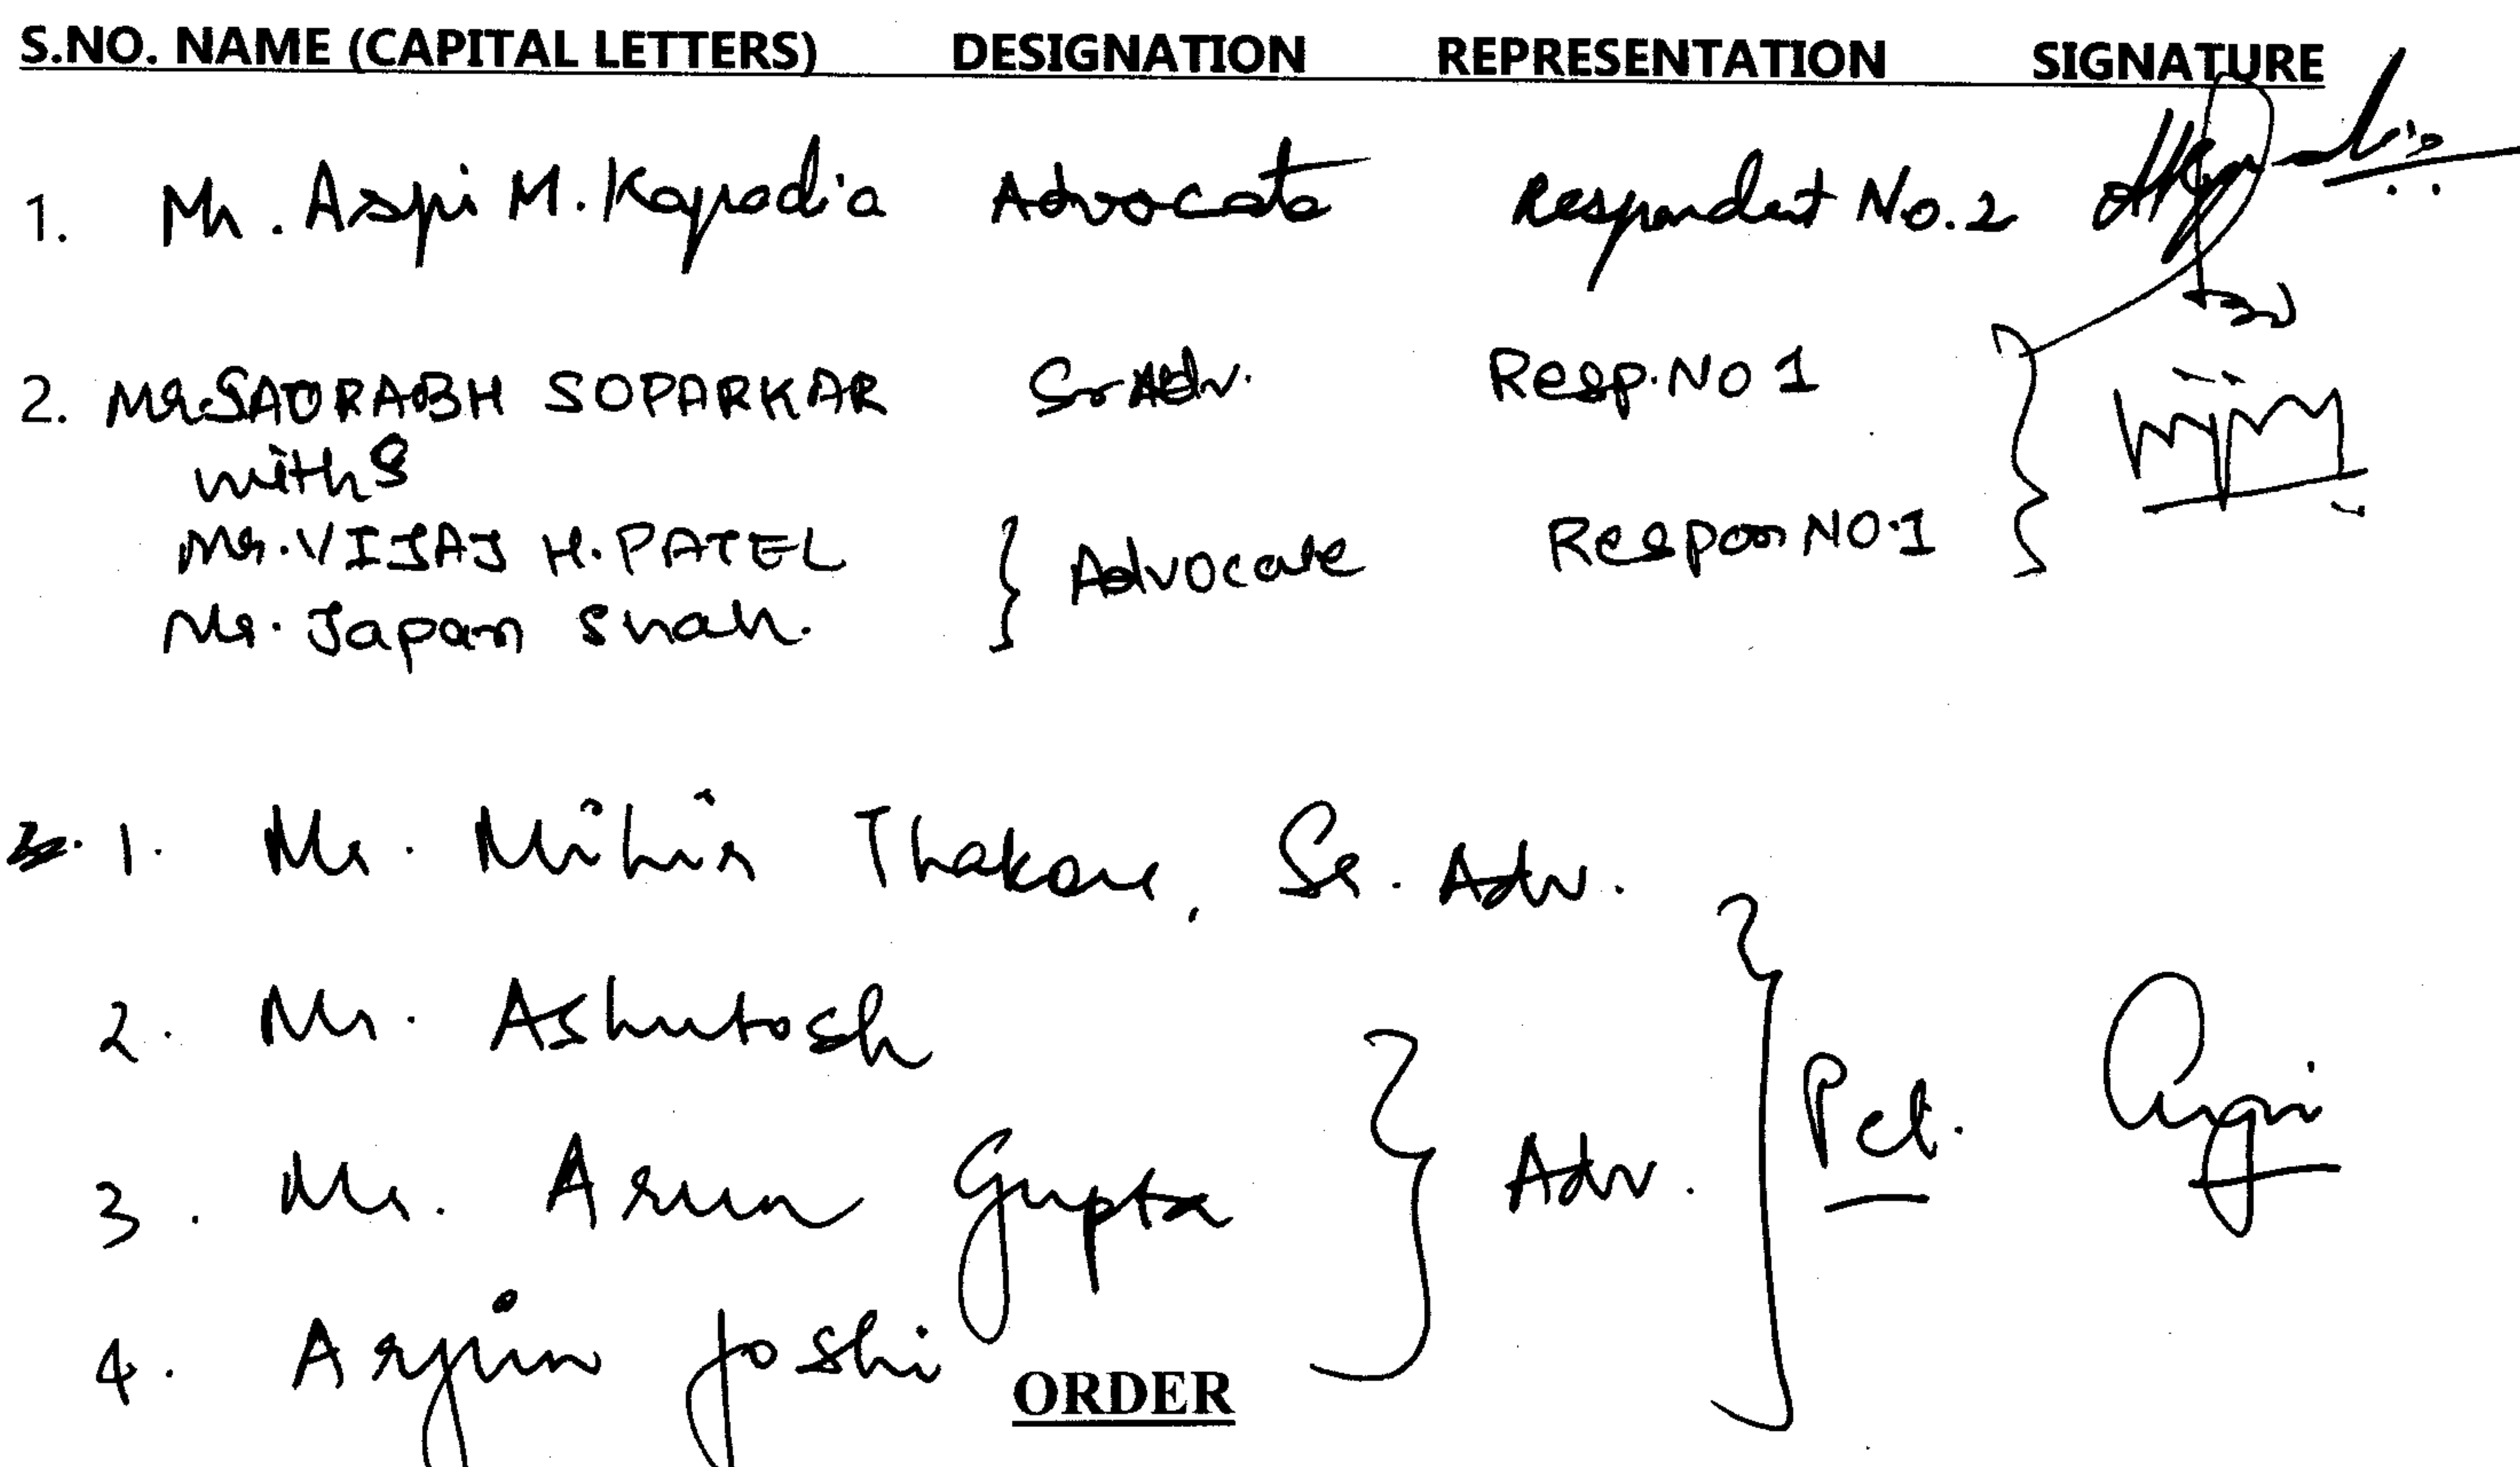 S.NO. NAME (CAPITAL LETTERS) DESIGNATION REPRESENTATION SIGNATURE
1. Mr. Aspi M. Kapadia Advocate Respondent No. 2
2. Mr. SAURABH SOPARKAR Sr Adv. Resp. No 1
with
Mr. VIJAY H. PATEL } Advocate Respon NO. 1
Mr. Japan Shah.
1. Mr. Mihir Thakore, Sr. Adv.
2. Mr. Ashutosh
3. Mr. Arun Gupta } Adv. } Pet.
4. Arjun Joshi
ORDER